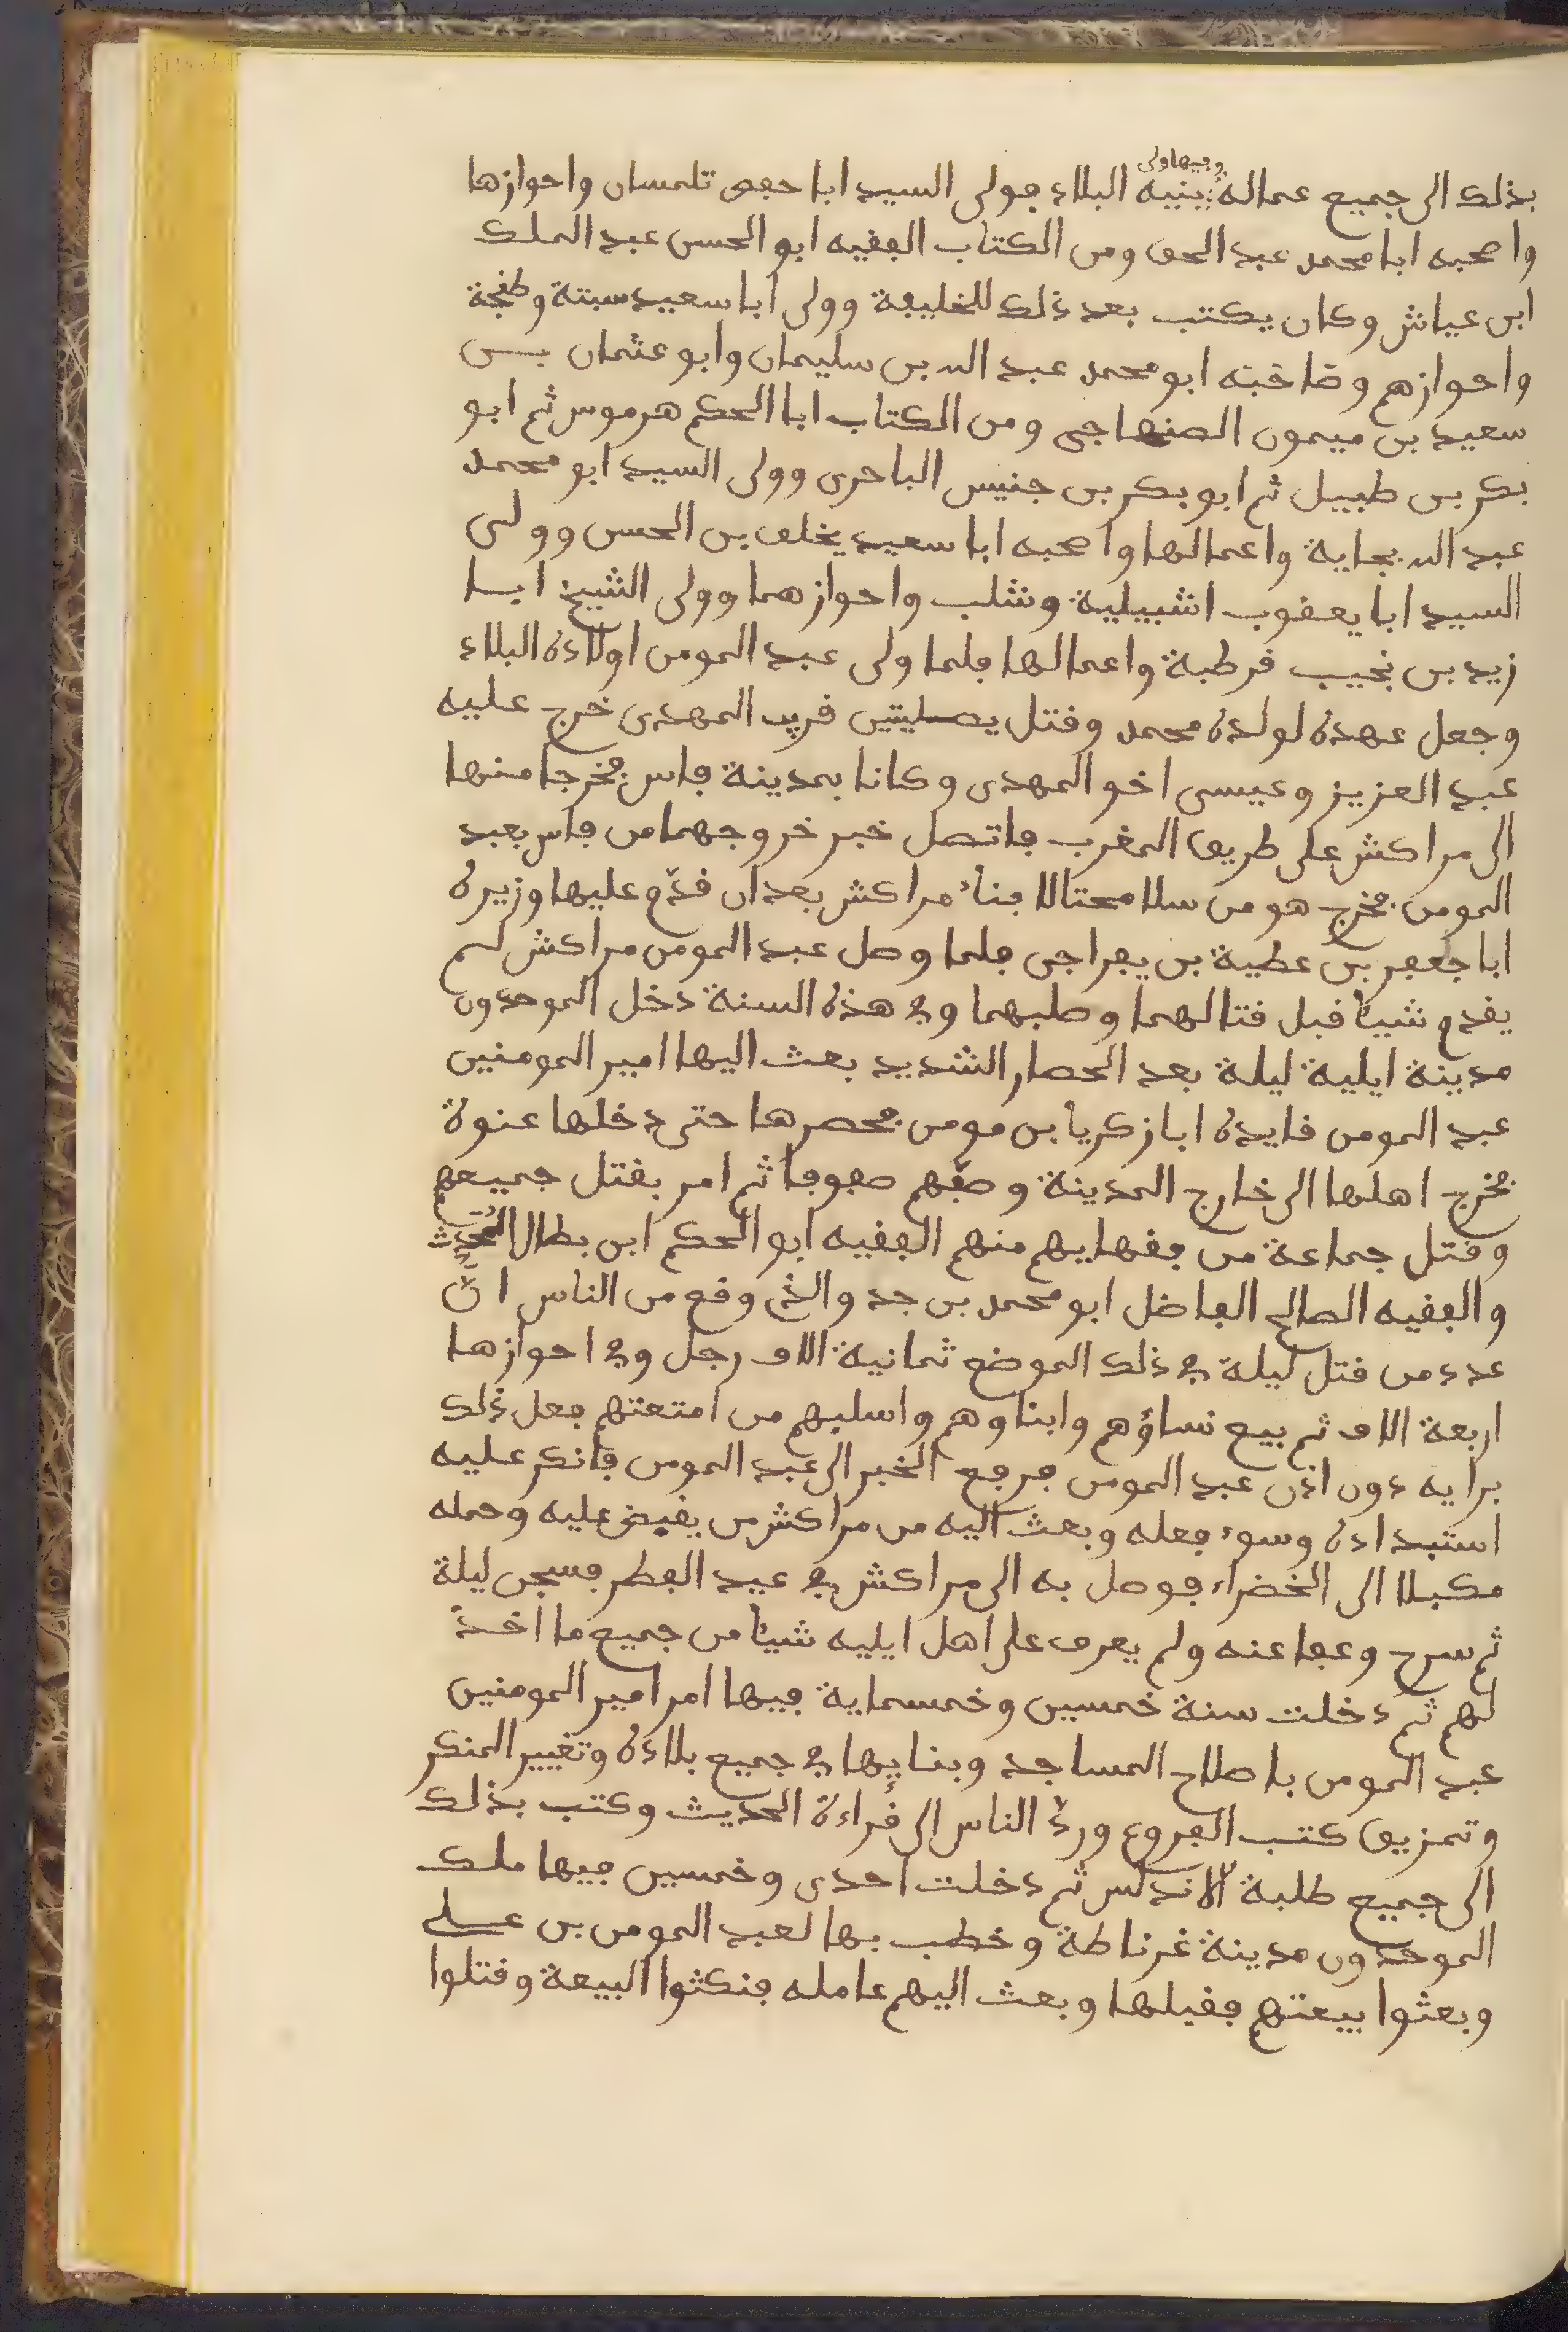 بذلك الى جميع عماله وفيها ولى بنيه البلاد فولى السيد ابا حفص تلمسان واحوازها
واصحبه ابا محمد عبد الحق ومن الكتاب الفقيه ابو الحسن عبد الملك
ابن عياش وكان يكتب بعد ذلك للخليفة وولى ابا سعيد سبتة وطنجة
واحوازهم وصاحبه ابو محمد عبد الله بن سليمان وابو عثمان بن
سعيد بن ميمون الصنهاجى ومن الكتاب ابا الحكم هرموس ثم ابو
بكر بن طبيل ثم ابو بكر بن جنيس الباجرى وولى السيد ابو محمد
عبد الله بجاية واعمالها واصحبه ابا سعيد يخلف بن الحسن وولى
السيد ابا يعقوب اشبيلية وشلب واحوازهما وولى الشيخ ابا
زيد بن نجيب قرطبة واعمالها فلما ولى عبد المومن اولاده البلاد
وجعل عهده لولده محمد وقتل يصليتين قريب المهدى خرج عليه
عبد العزيز وعيسى اخو المهدى وكانا بمدينة فاس فخرجا منها
الى مراكش على طريق المغرب فاتصل خبر خروجهما من فاس بعبد
المومن فخرج هو من سلا محتالا بناء مراكش بعد ان قدّم عليها وزيره
ابا جعفر بن عطية بن يفراجى فلما وصل عبد المومن مراكش لم
يقدم شيئا قبل قتالهما وصلبهما وفى هذه السنة دخل الموحدون
مدينة ايلية ليلة بعد الحصار الشديد بعث اليها امير المومنين
عبد المومن قايده ابا زكريا بن مومن فحصرها حتى دخلها عنوة
فخرج اهلها الى خارج المدينة وصفّهم صفوفا ثم امر بقتل جميعهم
وقتل جماعة من فقهايهم منهم الفقيه ابو الحكم ابن بطال المُحدِّث
والفقيه الصالح الفاضل ابو محمد بن جد والذى وقع من الناس انّ
عدد من قتل ليلة فى ذلك الموضع ثمانية الاف رجل وفى احوازها
اربعة الاف ثم بيع نساؤهم وابناوهم واسلبهم من امتعتهم فعل ذلك
برايه دون اذن عبد المومن فرجع الخبر الى عبد المومن فانكر عليه
استبداده وسوء فعله وبعث اليه من مراكش من يقبض عليه وحمله
مكبلا الى الخضراء فوصل به الى مراكش فى عيد الفطر فسجن ليلة
ثم سرح وعفا عنه ولم يعرف على اهل ايليه شيئا من جميع ما اخذ
لهم ثم دخلت سنة خمسين وخمسماية فيها امر امير المومنين
عبد المومن باصلاح المساجد وبنايها فى جميع بلاده وتغيير المنكر
وتمزيق كتب الفروع وردّ الناس الى قراءة الحديث وكتب بذلك
الى جميع طلبة الاندلس ثم دخلت احدى وخمسين فيها ملك
الموحدون مدينة غرناطة وخطب بها لعبد المومن بن على
وبعثوا بيعتهم فقبلها وبعث اليهم عامله فنكثوا البيعة وقتلوا